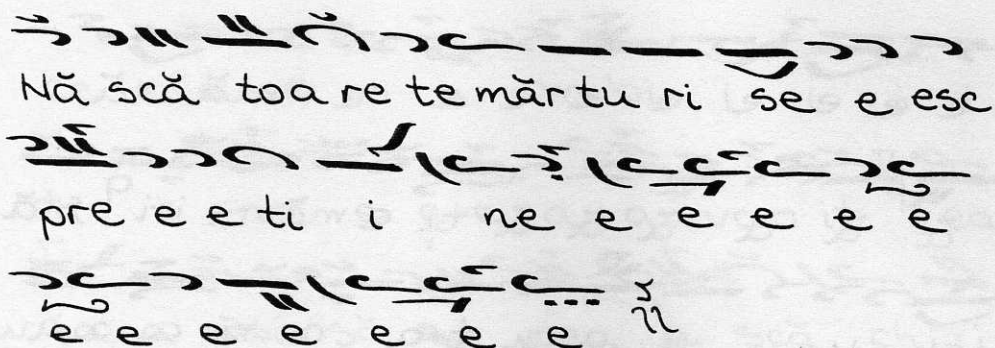 Nă scă toa re te măr tu ri se e esc
pre e e ti i ne e e e e e
e e e e e e e